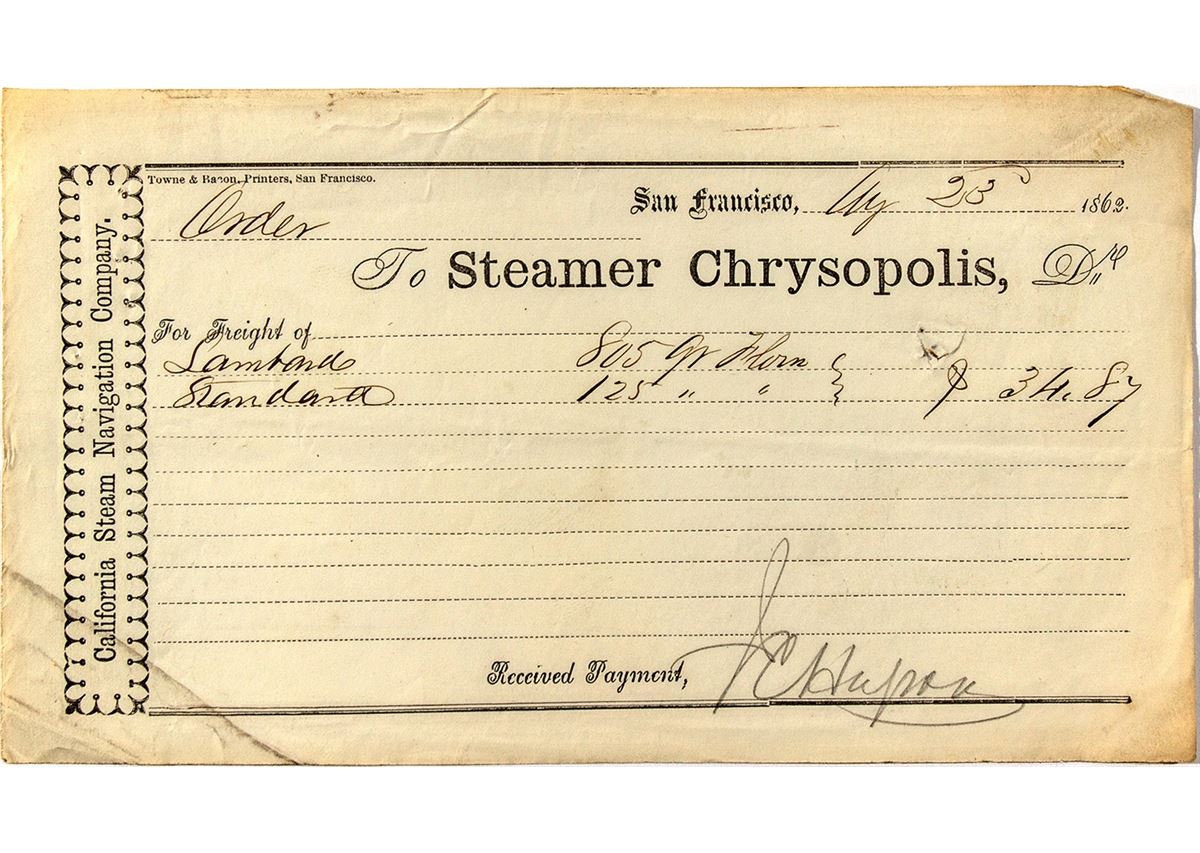 Towne & Bacon, Printers, San Francisco.
San Francisco, Aug 25 1862.
Order
To Steamer Chrysopolis, Dr
For Freight of
Lambard 805 qr Flour
Standard 125 " " $ 34.87
Received Payment,
California Steam Navigation Company.